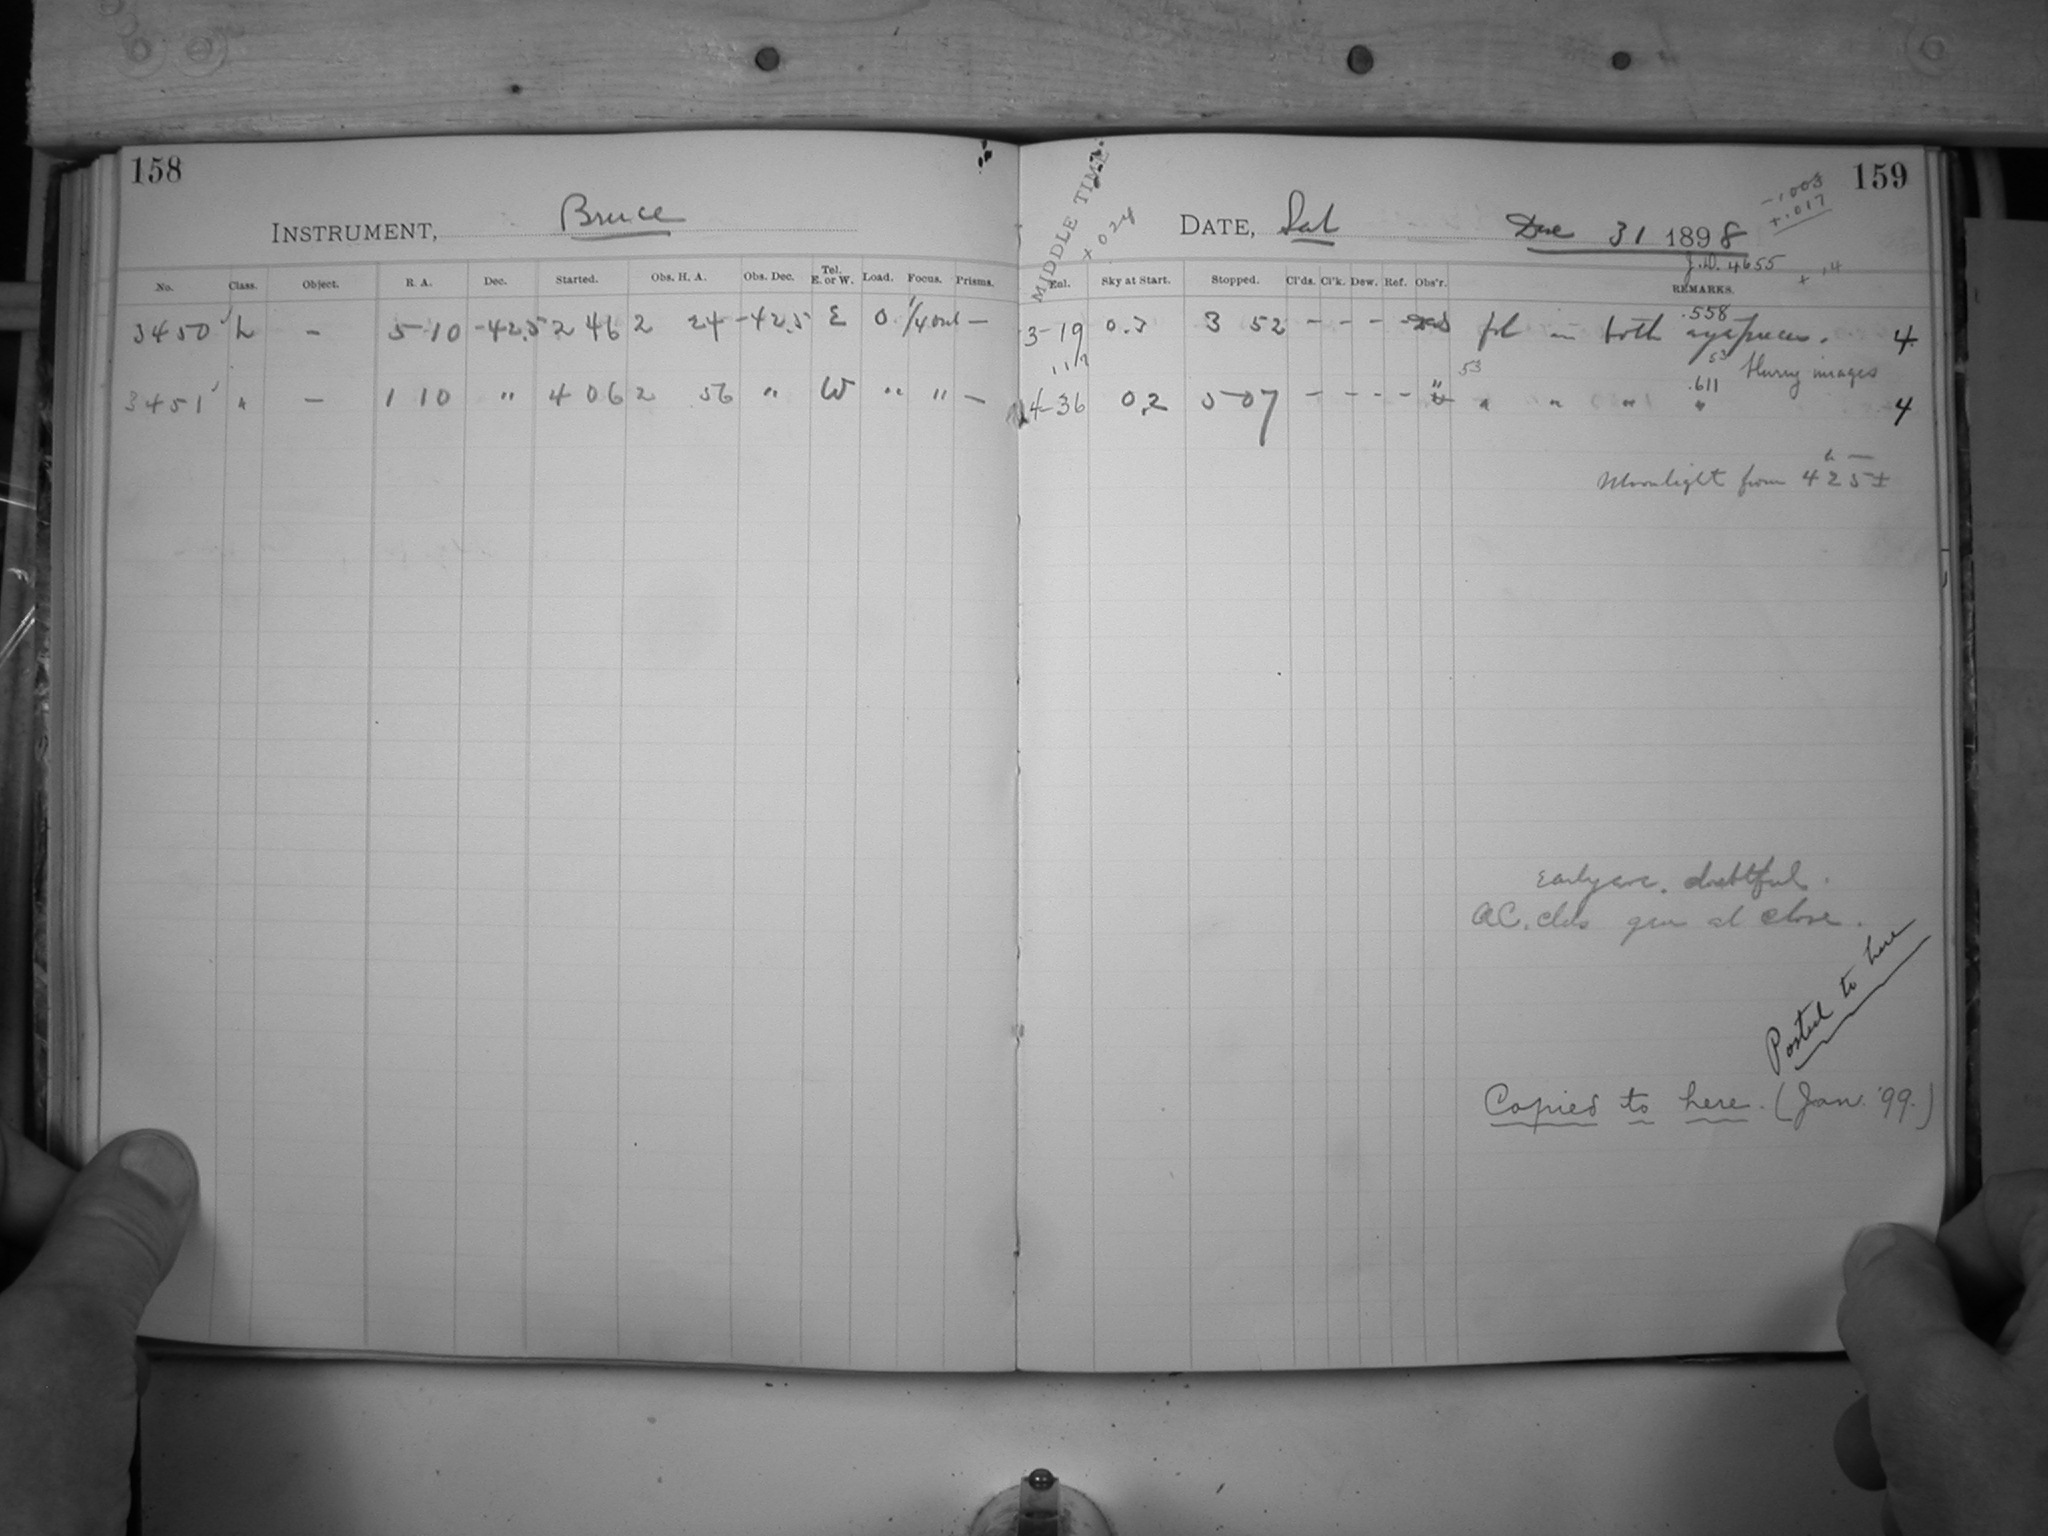 158
INSTRUMENT, Bruce
No. Class. Object. R. A. Dec. Started. Obs. H. A. Obs. Dec. Tel. E. or W. Load. Focus. Prisms.
3450 L – 5 10 -42.5 2 46 2 24 -42.5 E 0 1/4 out –
3451 " – 1 10 " 4 06 2 56 " W " " –
159
MIDDLE TIME
+ 024
DATE, Sat Dec 31 1898
-.003
+.017
J.D. 4655
+ .14
Eol. Sky at Start. Stopped. Cl'ds. Cl'k. Dew. Ref. Obs'r. REMARKS.
.558
3-19 0.3 3 52 - - - - fol in both eyepieces. 4
53 blurry images
53 .611
4-36 0.2 5 07 - - - - " " " " " 4
Moonlight from 4h 25 ±
Early ave. doubtful.
A.C. clds gen at close.
Posted to here
Copied to here. (Jan. '99.)